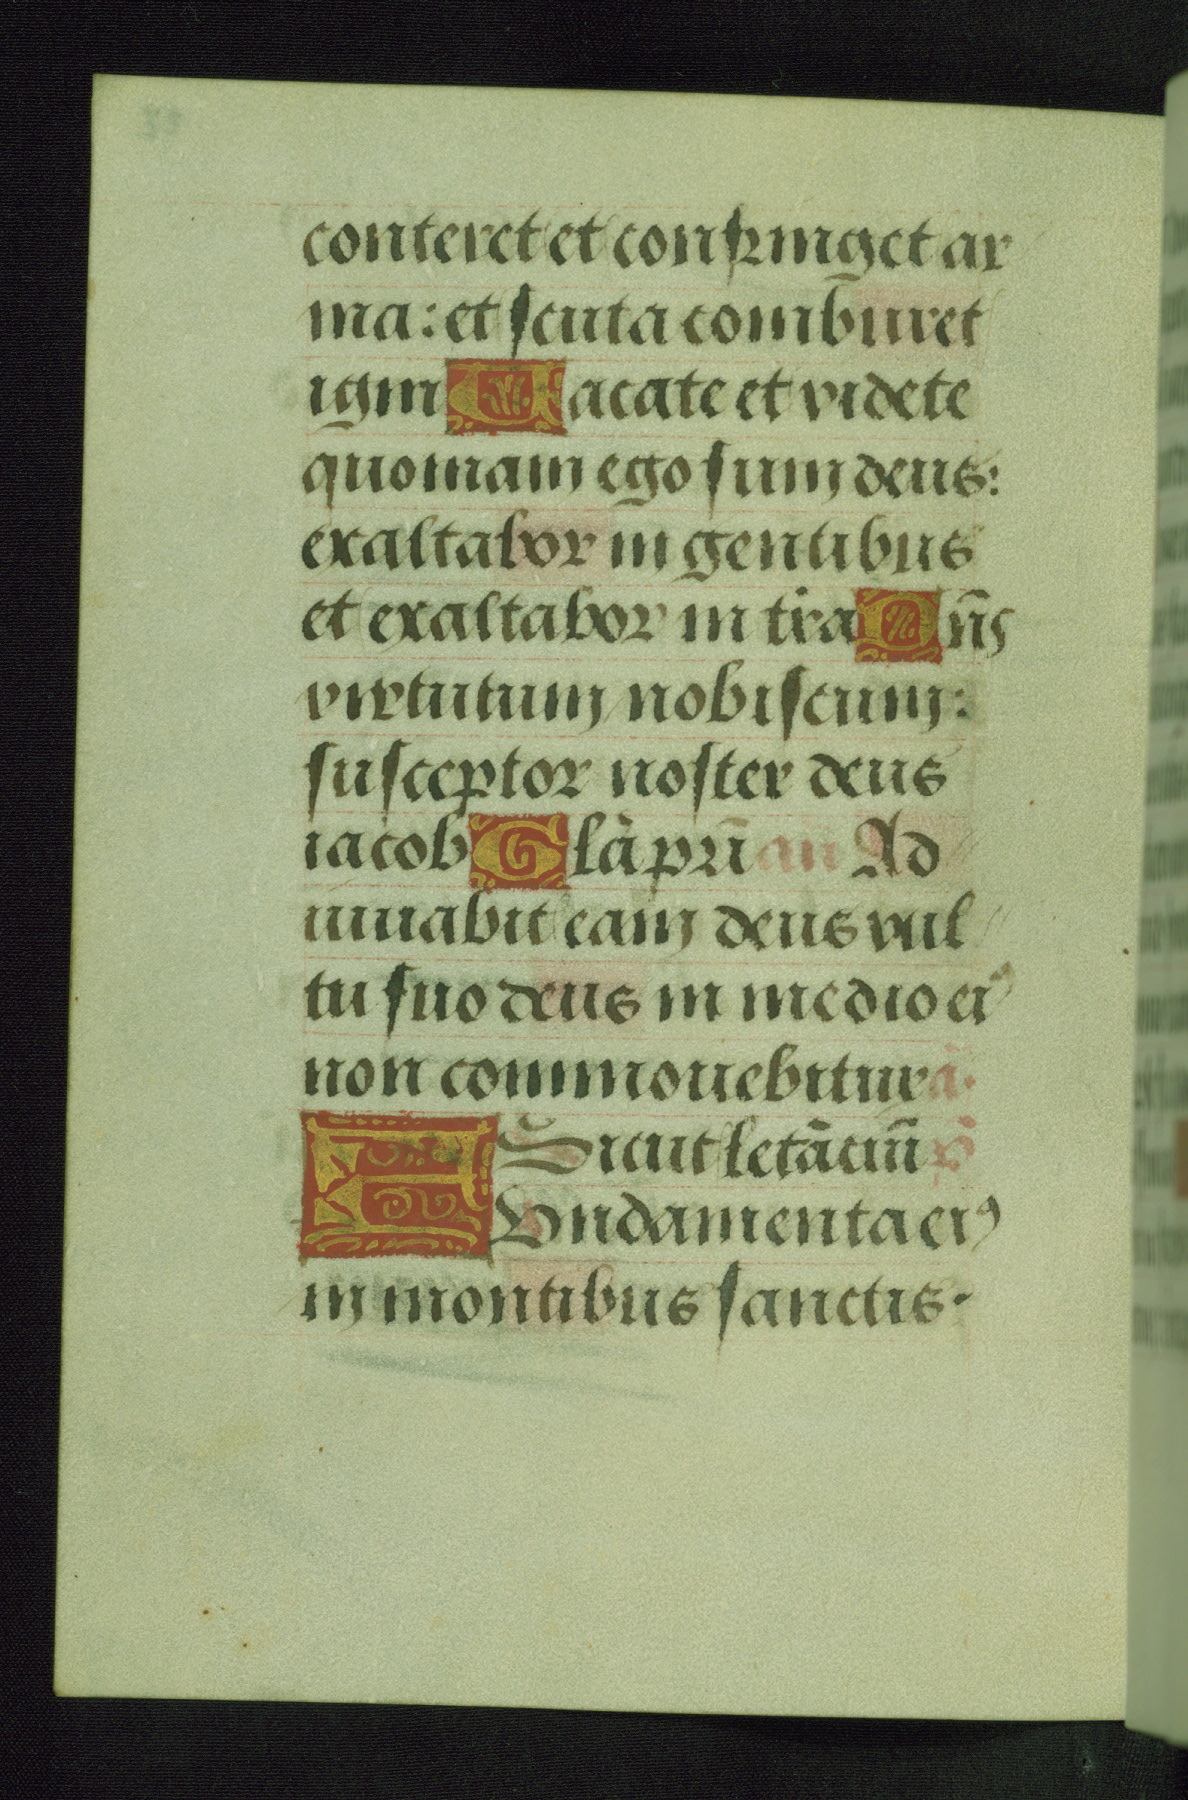 conteret et confringet ar
ma: et scuta comburet
igni Uacate et videte
quoniam ego sum deus:
exaltabor in gentibus
et exaltabor in tr̄a Dn̄s
virtutum nobiscum:
susceptor noster deus
iacob Glā pr̄i an̄ Ad
iuuabit eam deus vul
tu suo deus in medio ei⁹
non commouebitur ā.
Sicut letāciū p̄
Fundamenta ei⁹
in montibus sanctis.